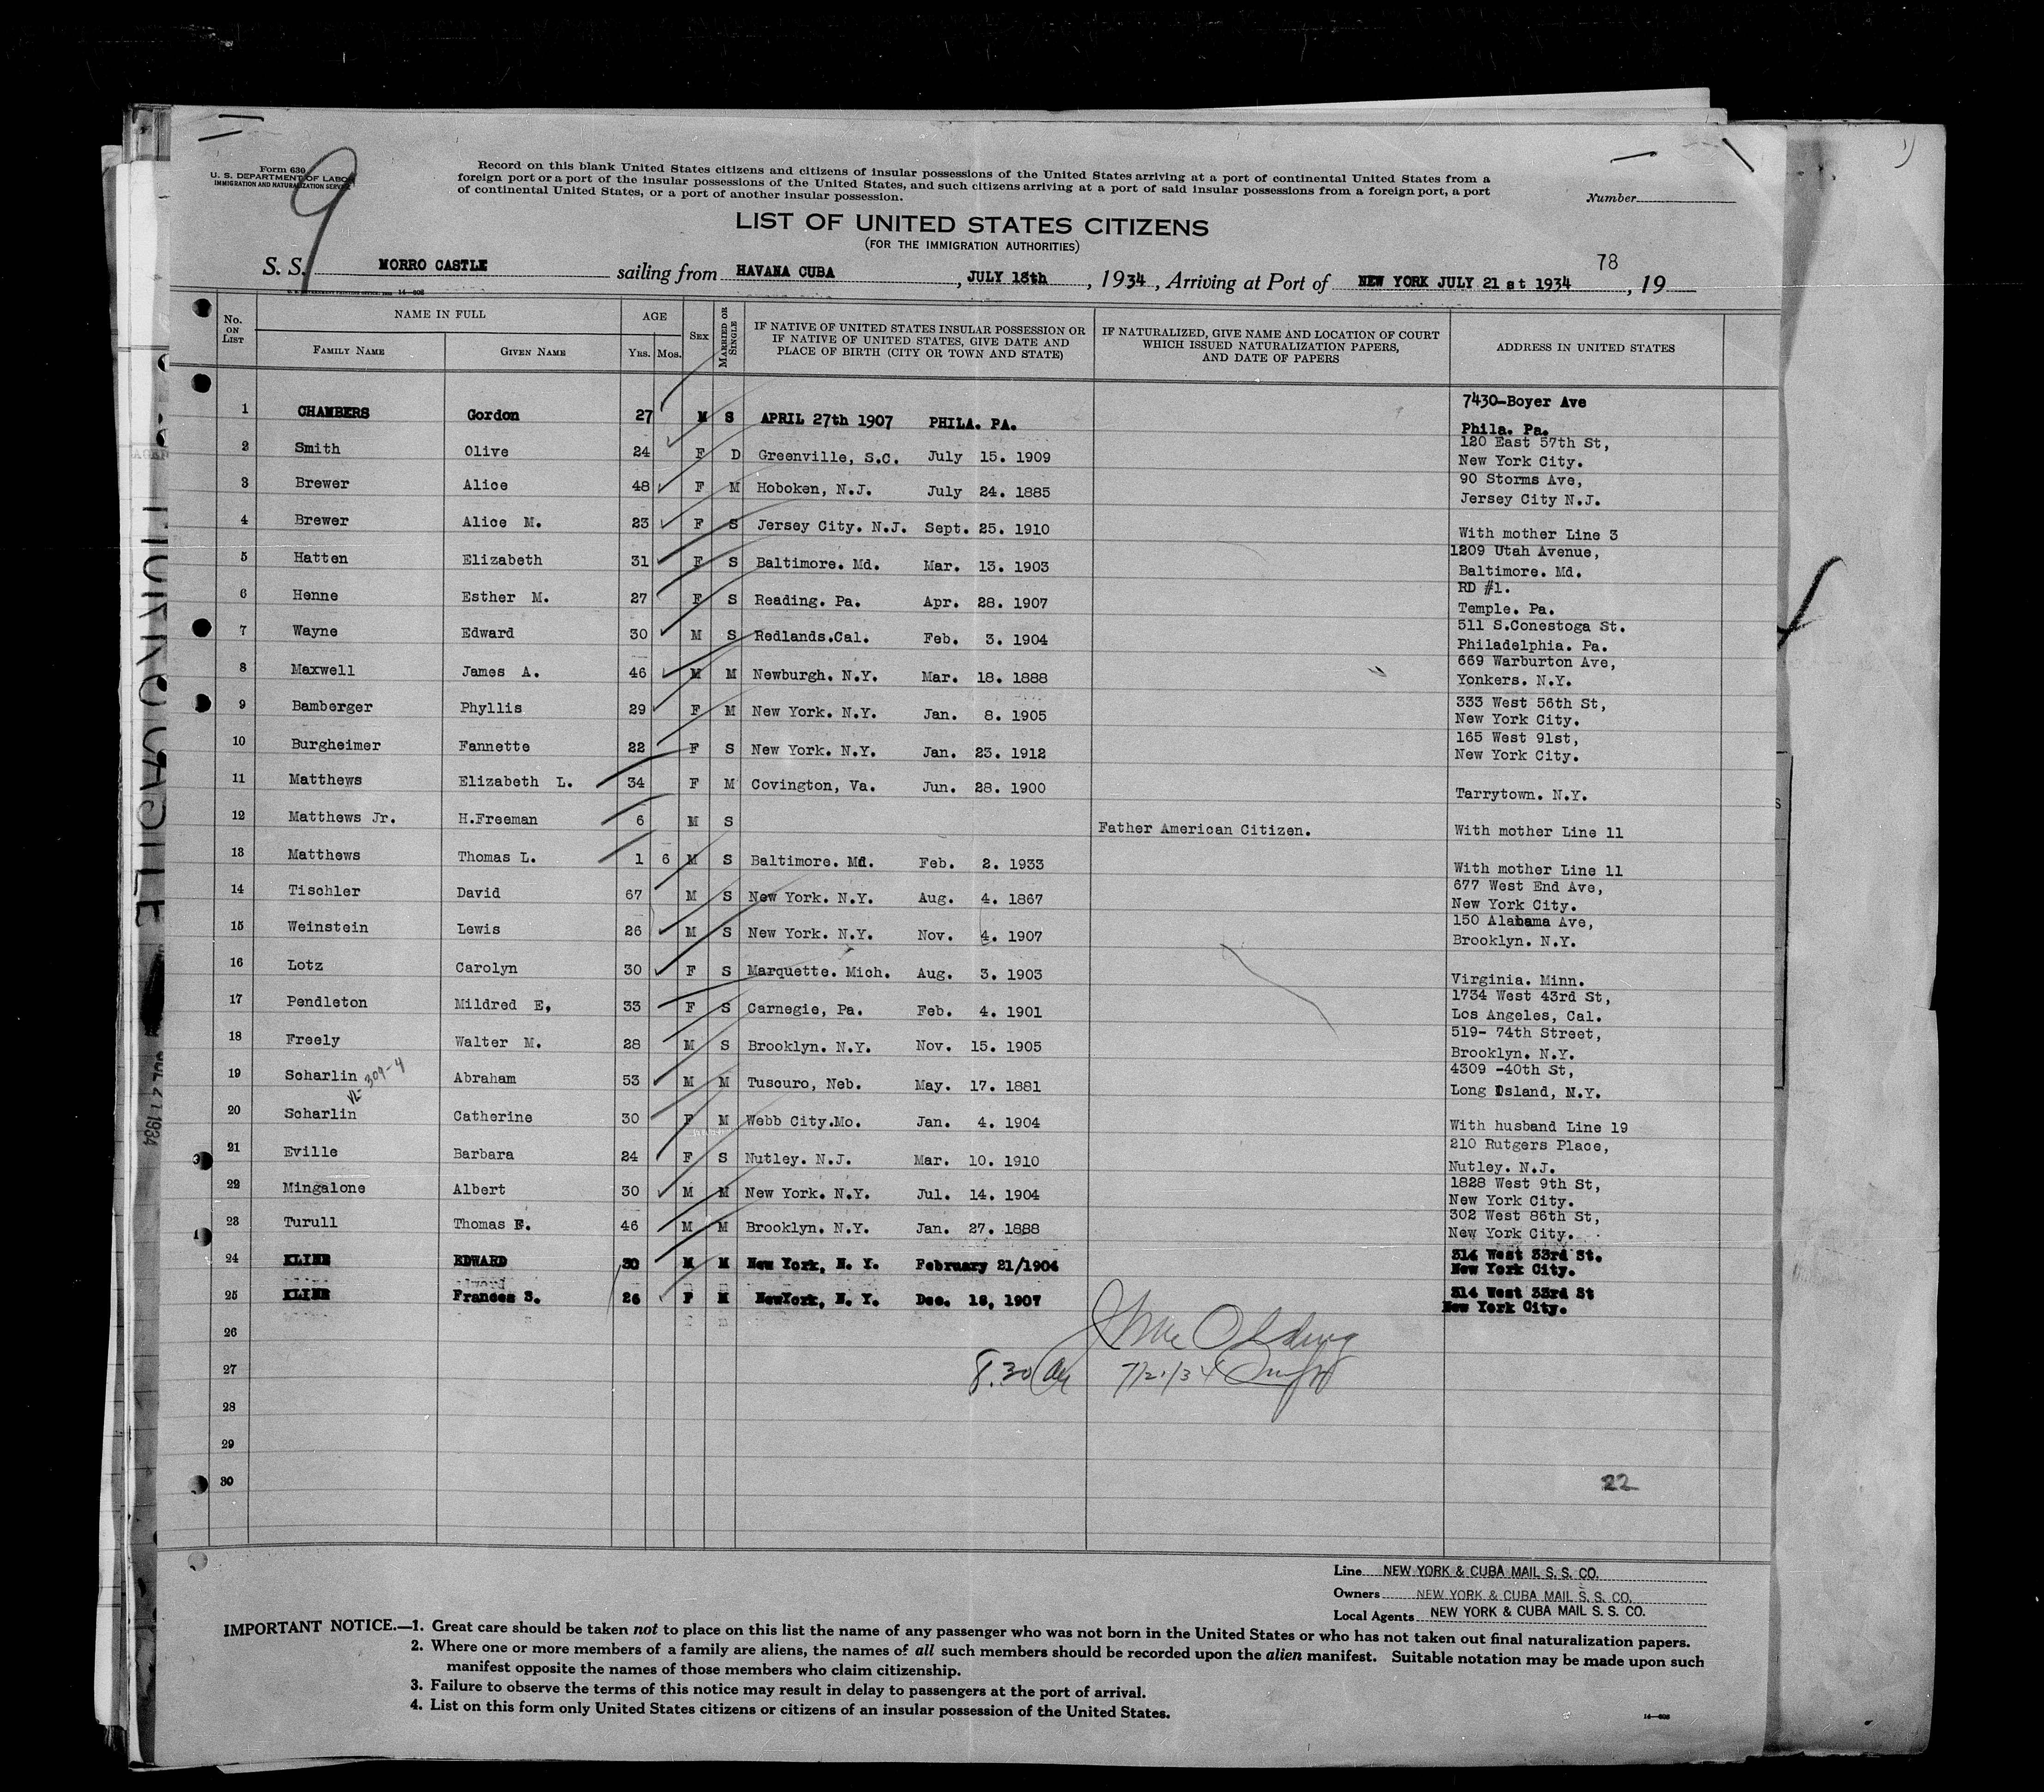 Form 630
U. S. DEPARTMENT OF LABOR
IMMIGRATION AND NATURALIZATION SERVICE
9
Record on this blank United States citizens and citizens of insular possessions of the United States arriving at a port of continental United States from a
foreign port or a port of the insular possessions of the United States, and such citizens arriving at a port of said insular possessions from a foreign port, a port
of continental United States, or a port of another insular possession.
Number
LIST OF UNITED STATES CITIZENS
(FOR THE IMMIGRATION AUTHORITIES)
78
S. S. MORRO CASTLE sailing from HAVANA CUBA, JULY 18th, 1934, Arriving at Port of NEW YORK JULY 21st 1934, 19
14-608
No. ON LIST NAME IN FULL AGE SEX MARRIED OR SINGLE IF NATIVE OF UNITED STATES INSULAR POSSESSION OR IF NATIVE OF UNITED STATES, GIVE DATE AND PLACE OF BIRTH (CITY OR TOWN AND STATE) IF NATURALIZED, GIVE NAME AND LOCATION OF COURT WHICH ISSUED NATURALIZATION PAPERS, AND DATE OF PAPERS ADDRESS IN UNITED STATES
FAMILY NAME GIVEN NAME YRS. MOS.
7430-Boyer Ave
1 CHAMBERS Gordon 27 M S APRIL 27th 1907 PHILA. PA. Phila. Pa.
120 East 57th St,
2 Smith Olive 24 F D Greenville, S.C. July 15. 1909 New York City.
90 Storms Ave,
3 Brewer Alice 48 F M Hoboken, N.J. July 24. 1885 Jersey City N.J.
4 Brewer Alice M. 23 F S Jersey City. N.J. Sept. 25. 1910 With mother Line 3
1209 Utah Avenue,
5 Hatten Elizabeth 31 F S Baltimore. Md. Mar. 13. 1903 Baltimore. Md.
RD #1.
6 Henne Esther M. 27 F S Reading. Pa. Apr. 28. 1907 Temple. Pa.
511 S.Conestoga St.
7 Wayne Edward 30 M S Redlands.Cal. Feb. 3. 1904 Philadelphia. Pa.
669 Warburton Ave,
8 Maxwell James A. 46 M M Newburgh. N.Y. Mar. 18. 1888 Yonkers. N.Y.
333 West 56th St,
9 Bamberger Phyllis 29 F M New York. N.Y. Jan. 8. 1905 New York City.
165 West 91st,
10 Burgheimer Fannette 22 F S New York. N.Y. Jan. 23. 1912 New York City.
11 Matthews Elizabeth L. 34 F M Covington, Va. Jun. 28. 1900 Tarrytown. N.Y.
12 Matthews Jr. H.Freeman 6 M S Father American Citizen. With mother Line 11
13 Matthews Thomas L. 1 6 M S Baltimore. Md. Feb. 2. 1933 With mother Line 11
677 West End Ave,
14 Tischler David 67 M S New York. N.Y. Aug. 4. 1867 New York City.
150 Alabama Ave,
15 Weinstein Lewis 26 M S New York. N.Y. Nov. 4. 1907 Brooklyn. N.Y.
16 Lotz Carolyn 30 F S Marquette. Mich. Aug. 3. 1903 Virginia. Minn.
1734 West 43rd St,
17 Pendleton Mildred E, 33 F S Carnegie, Pa. Feb. 4. 1901 Los Angeles, Cal.
519- 74th Street,
18 Freely Walter M. 28 M S Brooklyn. N.Y. Nov. 15. 1905 Brooklyn. N.Y.
4309 -40th St,
19 Scharlin VL-309-4 Abraham 53 M M Tuscuro, Neb. May. 17. 1881 Long Dsland, N.Y.
20 Scharlin Catherine 30 F M Webb City.Mo. Jan. 4. 1904 With husband Line 19
210 Rutgers Place,
21 Eville Barbara 24 F S Nutley. N.J. Mar. 10. 1910 Nutley. N.J.
1828 West 9th St,
22 Mingalone Albert 30 M M New York. N.Y. Jul. 14. 1904 New York City.
302 West 86th St,
23 Turull Thomas F. 46 M M Brooklyn. N.Y. Jan. 27. 1888 New York City.
314 West 33rd St.
24 KLINE EDWARD 30 M M New York, N. Y. February 21/1904 New York City.
314 West 33rd St
25 KLINE Frances S. 26 F M NewYork, N. Y. Dec. 18, 1907 New York City.
26
27 8.30 7/21/34
28
29
30 22
Line NEW YORK & CUBA MAIL S. S. CO.
Owners NEW YORK & CUBA MAIL S. S. CO.
Local Agents NEW YORK & CUBA MAIL S. S. CO.
IMPORTANT NOTICE.—1. Great care should be taken not to place on this list the name of any passenger who was not born in the United States or who has not taken out final naturalization papers.
2. Where one or more members of a family are aliens, the names of all such members should be recorded upon the alien manifest. Suitable notation may be made upon such
manifest opposite the names of those members who claim citizenship.
3. Failure to observe the terms of this notice may result in delay to passengers at the port of arrival.
4. List on this form only United States citizens or citizens of an insular possession of the United States.
14-608